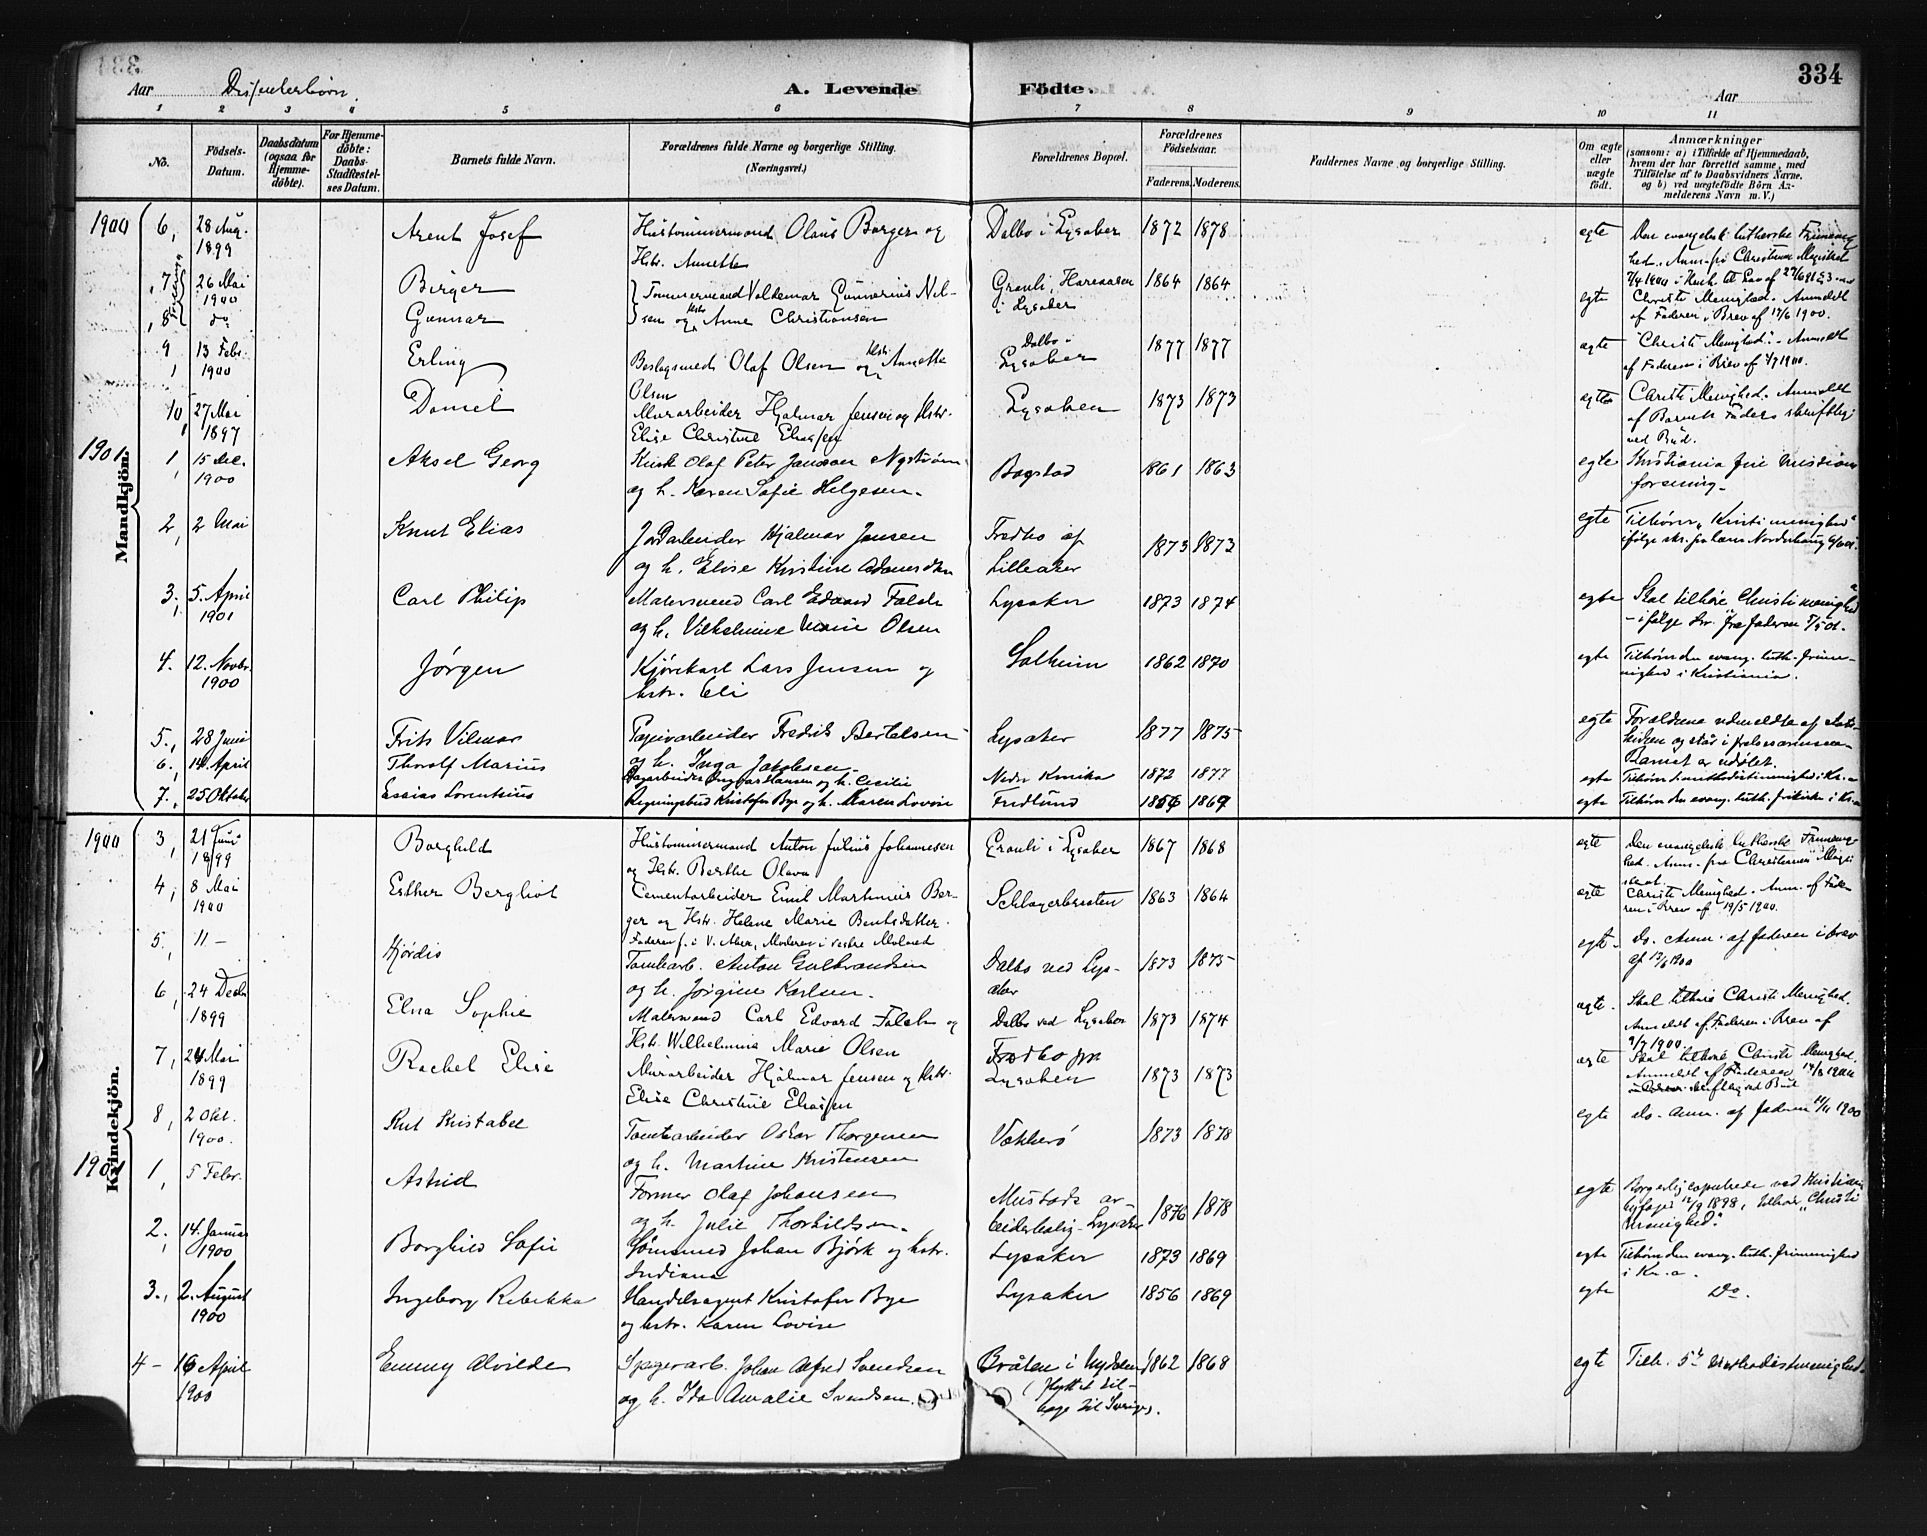 334
Aar Dissenterbörn. A. Levende Födte. Aar
1 2 3 4 5 6 7 8 9 10 11
No.
Födsels-Datum.
Daabsdatum (ogsaa för Hjemmedöbte).
For Hjemmedöbte: Daabs-Stadfæstelses Datum.
Barnets fulde Navn.
Forældrenes fulde Navne og borgerlige Stilling. (Næringsvei.)
Forældrenes Bopæl.
Forældrenes Födselsaar.
Faderens. Moderens.
Faddernes Navne og borgerlige Stilling.
Om ægte eller uægte födt.
Anmærkninger
(saasom: a) i Tilfælde af Hjemmedaab,
hvem der har forrettet samme, med
Tilföielse af to Daabsvidners Navne,
og b) ved uægtefödte Börn An-
melderens Navn m. V.)
Mandkjön.
1900 6, 28 Aug. 1899 Arent Josef Olaus Borger og Hstr. Annette Dalbo i Lysaker 1872 1878 egte Den evangelisk lutherske Frimenighed.
7, 26 Mai 1900 Birger Tømmermand Valdemar Gunnerius Nil- Granli, i Lysaker 1864 1864
8, do Gunnar sen og Hstr Anne Christiansen egte Christi Menighed. Anmeldt af Faderen i Brev af 17/6 1900.
9, 13 Febr. 1900 Erling Beslagsmed Olaf Olsen og Hstr Annette Olsen Dalbo i Lysaker 1877 1877 ægte "Christi Menighed". Anmeldt af Faderen i Brev af 1900.
10, 27 Mai 1897 Daniel Murarbeider Hjalmar Jensen og Hstr. Elise Christine Eliassen Lysaken 1873 1873 egte Christi Menighed. Anmeldt af Barnets Fader skriftlig ved Bud.
1901 1, 15 Dec. 1900 Aksel Georg Kusk Olaf Peter Jansson Nystrøm og h. Karen Sofie Helgesen. Bogstad 1861 1863 egte Kristiania frie Missionsforening.
2, 2 Mai Knut Elias Jordarbeider Hjalmar Jensen og h. Elise Kristine Fredbo af Lilleaker 1873 1873 egte Tilhører "Kristi menighed" ifølge skr. fra
3, 5. April 1901 Carl Philip Malersvend Carl Edvard Falch og h. Vilhelmine Marie Olsen Lysaker 1873 1874 egte Skal tilhøre "Christi menighed" - ifølge br. fra faderen 7/5 01.
4. 12. Novbr. 1900 Jørgen Kjørekarl Lars Jensen og hstr. Eli Solheim 1862 1870 egte Tilhører den evang. luth. frimenighed i Kristiania.
5., 28 Juni Frits Vilmar Papirarbeider Fredrik Bertelsen og h. Inga Jakobsen Lysaker 1877 1875 egte Forældrene udmeldte af Statskirken og står i frelsesarmeen. Barnet er udøbt.
6., 14. April Thorolf Marius Dagarbeider Ingvar Hansen og h. Cecilie Nedre 1872 1877 egte Tilhører methodistmenighed i Kr.a
7., 25 Oktober Esaias Lorentzius Regningsbud Kristofer Bye og h. Karen Lovise Fredlund 1856 1869 egte Tilhører den evang. luth. frikirke i Kr.a
Kvindekjön.
1900 3, 21 Juni 1899 Borghild Anton Julius Johannesen og Hstr. Berthe Olava Granli i Lysaker 1867 1868 egte Den evangelisk lutherske Frimenighed. Anm. fra Christiania Magistrat.
4, 8 Mai 1900 Esther Bergliot Cementarbeider Emil Martinius Berger og Hstr. Helene Marie Berntsdatter. 1863 1864 egte Christi Menighed. Anm. af Faderen i Brev af 19/5 1900.
Faderen f. i V. Aker, Moderen i vestre
5, 11 - Hjørdis Tomtearb. Anton Gulbrandsen og h. Jørgine Karlsen. Dalbo ved Lysaker 1873 1875 egte. do. Anm. af faderen i brev af 12/6 1900
6, 24 Decbr 1899 Elna Sophie Malersvend Carl Edvard Falch og Hstr. Wilhelmina Marie Olsen Dalbo ved Lysaker 1873 1874 ægte. Skal tilhøre Christi Menighed. Anmeldt af Faderen i Brev af 9/7 1900.
7, 24 Mai 1899 Rachel Elise Murarbeider Hjalmar Jensen og Hstr Elise Christine Eliassen Fredbo pr Lysaken 1873 1873 ægte Skal tilhøre Christi Menighed. Anmeldt af Faderen 1900
8, 2 Okt. 1900. Rut Kristabel Tomtearbeider Oskar Thorgersen og h. Martine Kristensen Vækkerø 1873 1878 egte do. Anm. af faderen 1900
1901 1, 5 Febr. Astrid Former Olaf Johansen og h. Julie Thorkildsen. Mustads arbeiderbolig - Lysaker 1876 1878 egte Borgerlig copulerede ved Kristiania byfoged 12/9 1898, tilhører "Christi Menighed".
2., 14. Januar 1900 Borghild Sofie Sømsmed Johan Bjørk og hstr. Indiana Lysaker 1873 1869 egte Tilhører den evang. luth. frimenighed i Kr.a.
3., 2. August 1900 Ingeborg Rebekka Handelsagent Kristofer Bye og hstr. Karen Lovise Lysaker 1856 1869 egte Do.
4 - 16 April 1900 Emmy Alvilde Johan Alfred Svendsen og h. Ida Amalie Svendsen. Bråten i Nydalen (flyttet tilbage til Sverige). 1862 1868 egte Tilh. 5te Methodistmenighed.